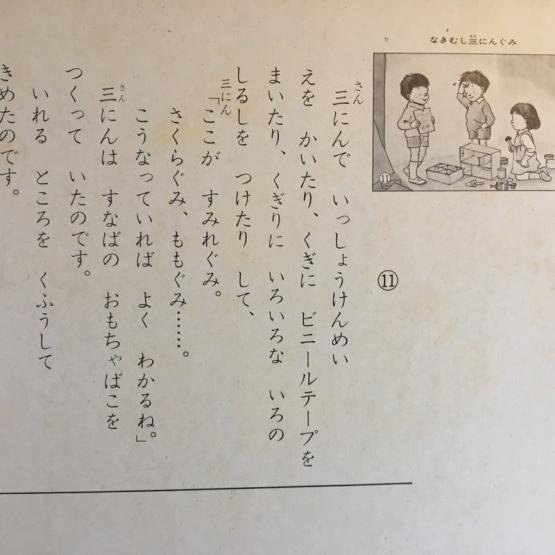 なきむし三にんぐみ
⑪
三にんで いっしょうけんめい
えを かいたり、くぎに ビニールテープを
まいたり、くぎりに いろいろな いろの
しるしを つけたり して、
三にん「ここが すみれぐみ。
さくらぐみ、ももぐみ……。
こうなっていれば よく わかるね」
三にんは すなばの おもちゃばこを
つくって いたのです。
いれる ところを くふうして
きめたのです。